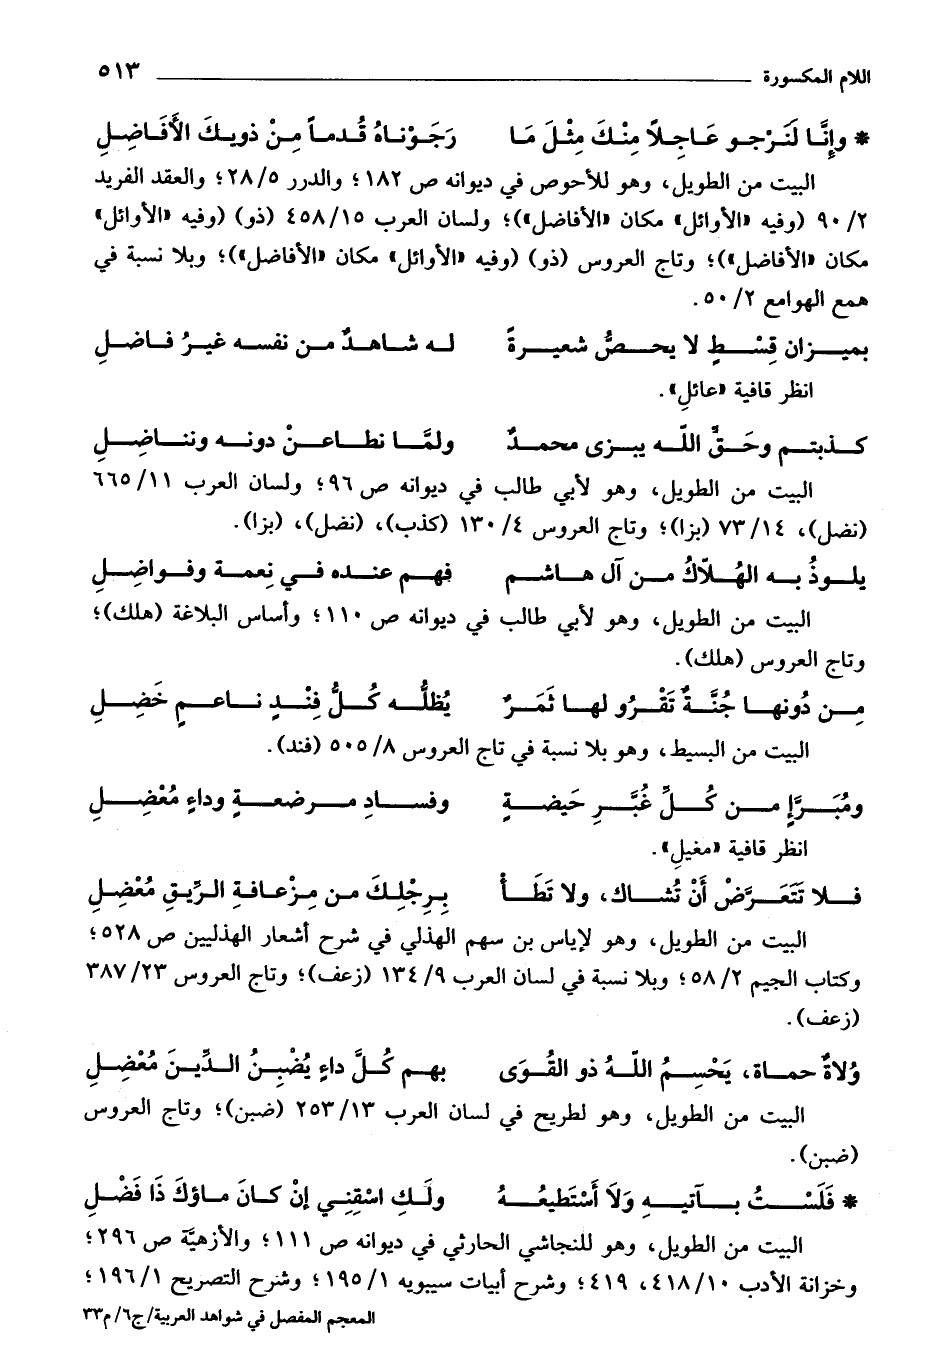 اللام المكسورة ٥١٣
* وإِنَّا لَنَرْجو عَاجِلاً مِنْكَ مِثْلَ مَا رَجَوْناهُ قُدماً مِنْ ذويكَ الأَفَاضِلِ
البيت من الطويل، وهو للأحوص في ديوانه ص ١٨٢؛ والدرر ٢٨/٥؛ والعقد الفريد
٩٠/٢ (وفيه «الأوائل» مكان «الأفاضل»)؛ ولسان العرب ٤٥٨/١٥ (ذو) (وفيه «الأوائل»
مكان «الأفاضل»)؛ وتاج العروس (ذو) (وفيه «الأوائل» مكان «الأفاضل»)؛ وبلا نسبة في
همع الهوامع ٥٠/٢.
بميزان قِسْطٍ لا يحصُّ شعيرةً له شاهدٌ من نفسه غيرُ فاضلِ
انظر قافية «عائلِ».
كذبتم وحَقَّ اللّه يبزى محمدٌ ولمَّا نطاعنْ دونه ونناضِلِ
البيت من الطويل، وهو لأبي طالب في ديوانه ص ٩٦؛ ولسان العرب ٦٦٥/١١
(نضل)، ٧٣/١٤ (بزا)؛ وتاج العروس ١٣٠/٤ (كذب)، (نضل)، (بزا).
يلوذُ به الهُلاّكُ من آل هاشم فهم عنده في نِعمة وفواضِلِ
البيت من الطويل، وهو لأبي طالب في ديوانه ص ١١٠؛ وأساس البلاغة (هلك)؛
وتاج العروس (هلك).
مِن دُونها جُنَّةٌ تَقْرُو لها ثَمَرٌ يُظلُّه كُلُّ فِنْدٍ ناعمٍ خَضِلِ
البيت من البسيط، وهو بلا نسبة في تاج العروس ٥٠٥/٨ (فند).
ومُبَرَّإٍ من كُلِّ غُبَّرِ حَيضةٍ وفسادِ مرضعةٍ وداءٍ مُعْضِلِ
انظر قافية «مغيلِ».
فلا تَتَعَرَّضْ أَنْ تُشاك، ولا تَطَأْ بِرِجْلِكَ من مِزْعافةِ الرِّيقِ مُعْضِلِ
البيت من الطويل، وهو لإياس بن سهم الهذلي في شرح أشعار الهذليين ص ٥٢٨؛
وكتاب الجيم ٥٨/٢؛ وبلا نسبة في لسان العرب ١٣٤/٩ (زعف)؛ وتاج العروس ٣٨٧/٢٣
(زعف).
وُلاةٌ حماة، يَحْسِمُ اللّهُ ذو القُوَى بهم كُلَّ داءٍ يُضْبِنُ الدِّينَ مُعْضِلِ
البيت من الطويل، وهو لطريح في لسان العرب ٢٥٣/١٣ (ضبن)؛ وتاج العروس
(ضبن).
* فَلَسْتُ بآتيهِ وَلاَ أَسْتَطيعُهُ ولَكِ اسْقِنِي إنْ كانَ ماؤكَ ذَا فَضْلِ
البيت من الطويل، وهو للنجاشي الحارثي في ديوانه ص ١١١؛ والأزهيَّة ص ٢٩٦؛
وخزانة الأدب ٤١٨/١٠، ٤١٩؛ وشرح أبيات سيبويه ١٩٥/١؛ وشرح التصريح ١٩٦/١؛
المعجم المفصل في شواهد العربية/ج٦/م٣٣